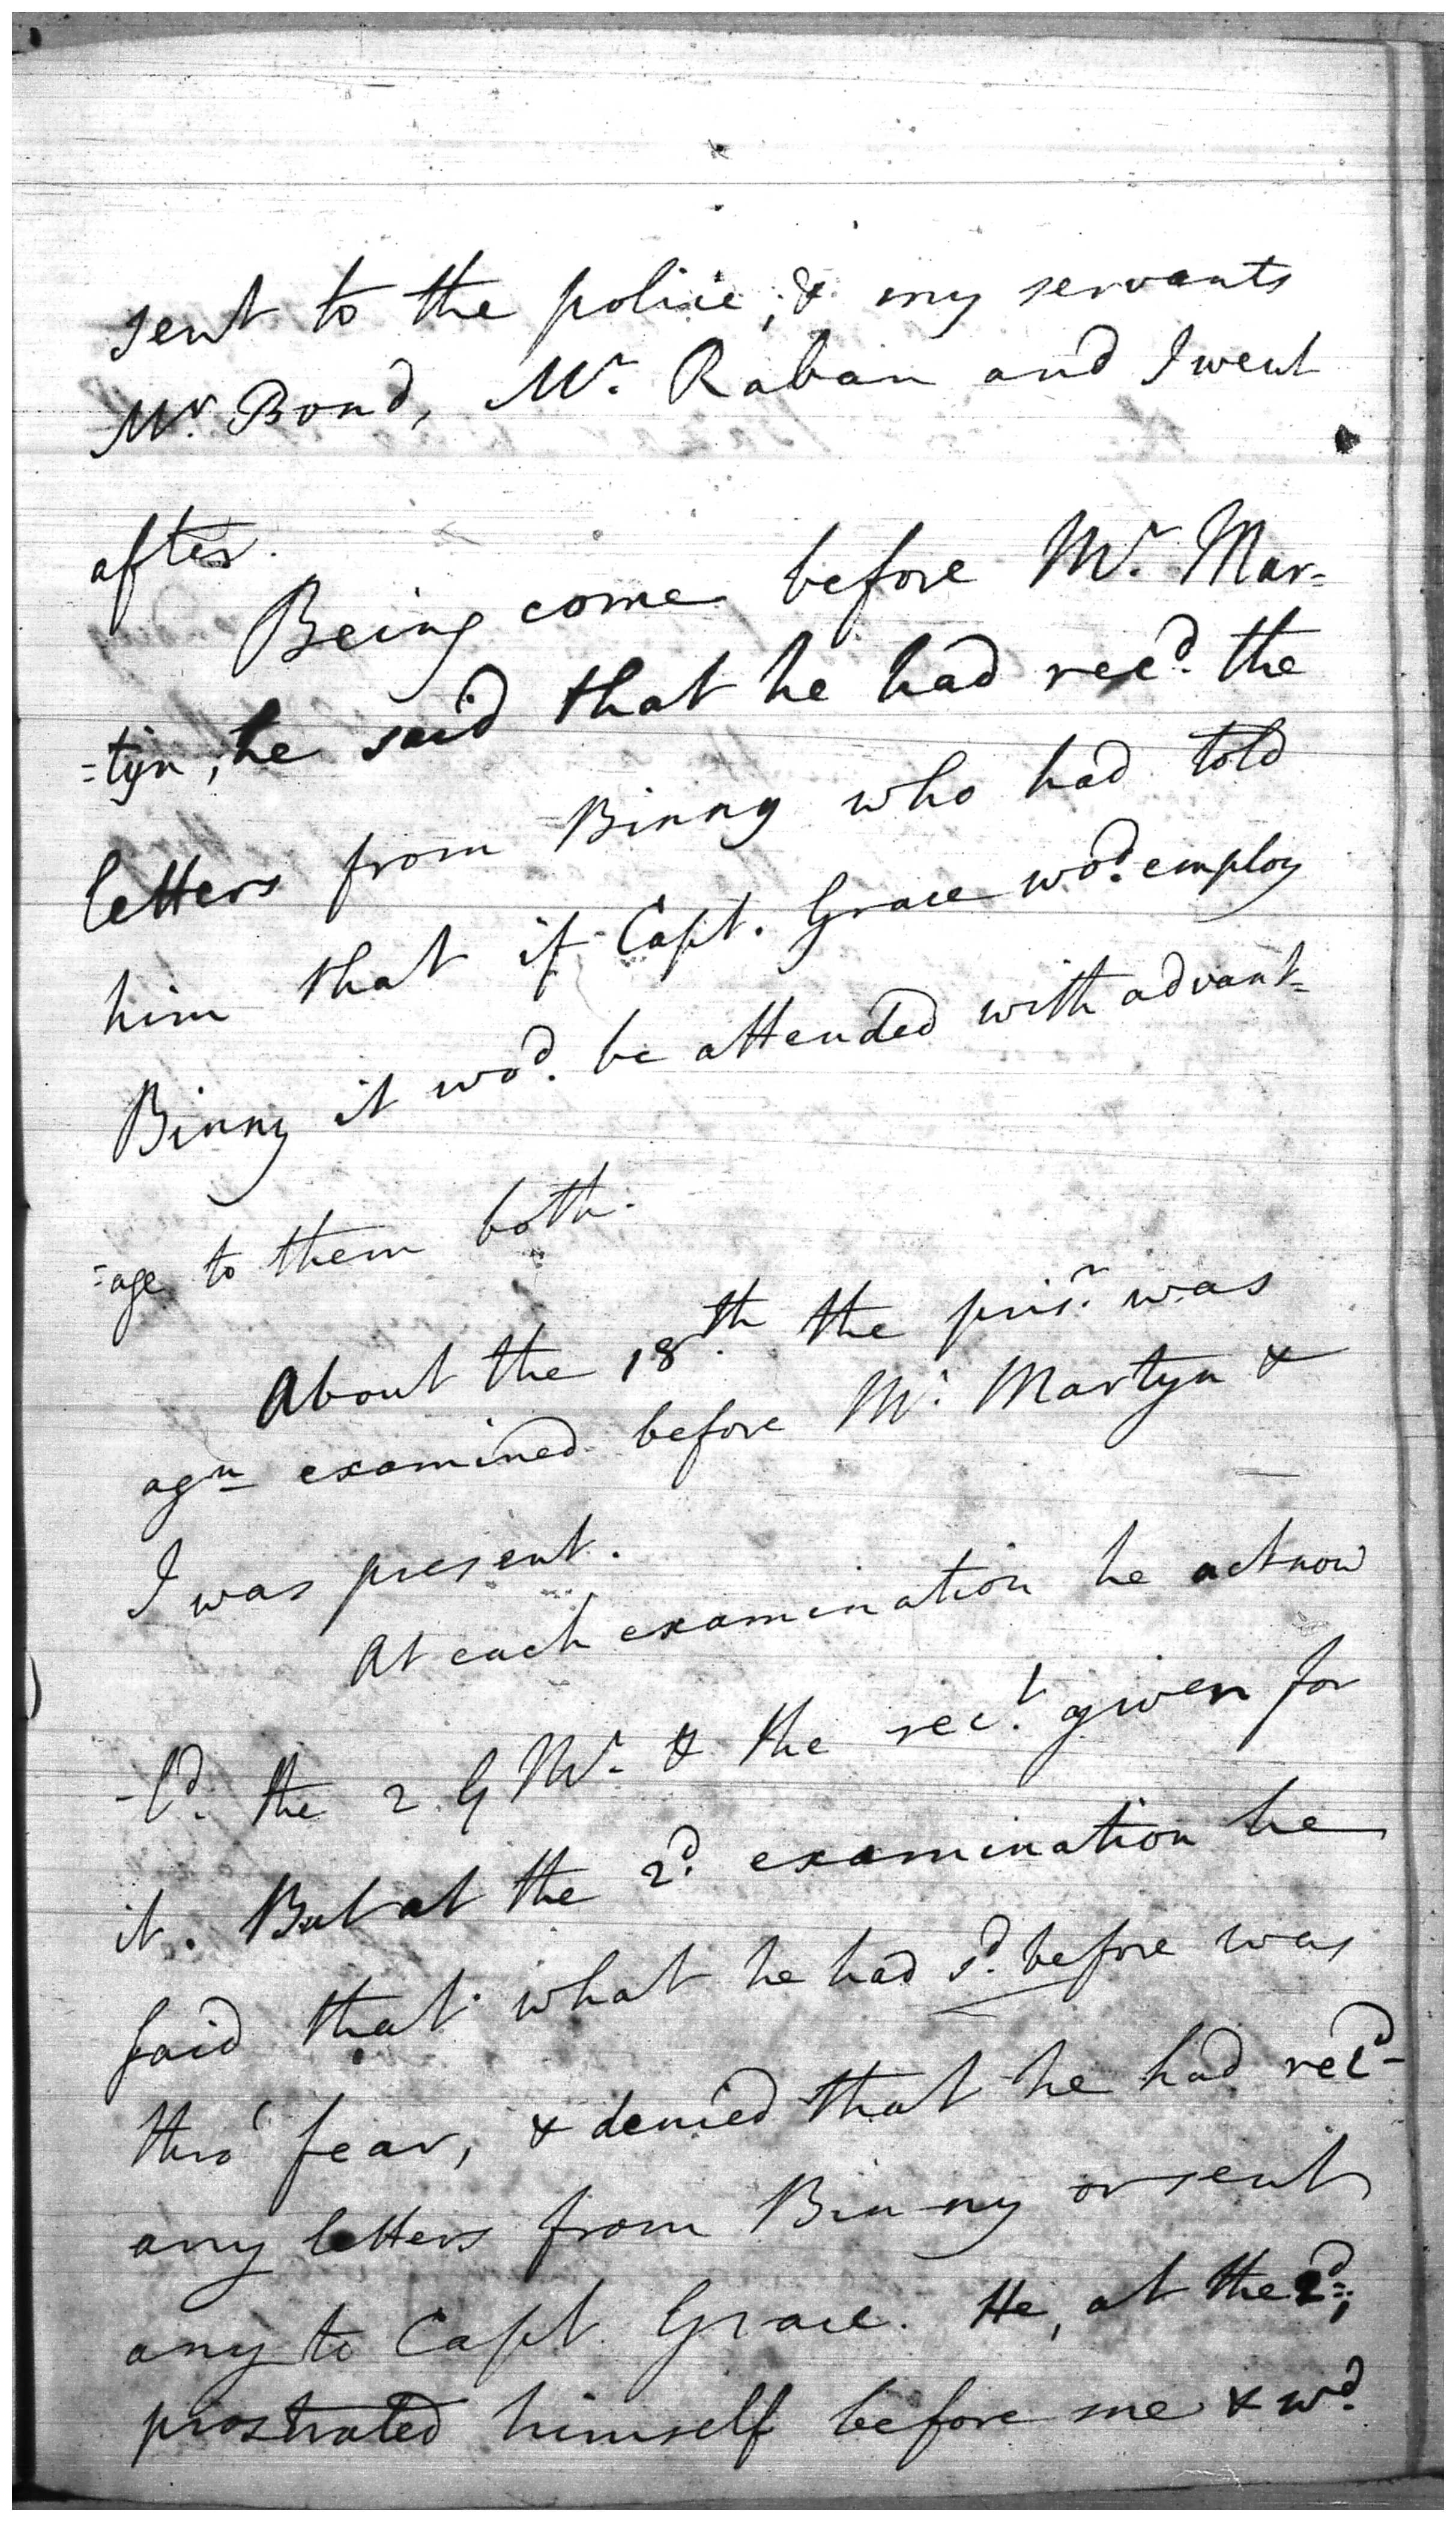 sent to the police; & my servants
Mr. Bond, Mr. Raban and I went
after.
Being come before Mr. Mar=
=tyn, he said that he had recd. the
letters from Binny who had told
him that if Capt. Grace wod. employ
Binny it wod. be attended with advant=
=age to them both.
About the 18th. the prisr. was
agn examined before Mr. Martyn &
I was present.
At each examination he acknow
-ld. the 2 G Mr. & the rect. given for
it. But at the 2d. examination he
said that what he had sd. before was
thro' fear, & denied that he had recd-
any letters from Binny or sent
any to Capt. Grace. He, at the 2d=,
prostrated himself before me & wd.